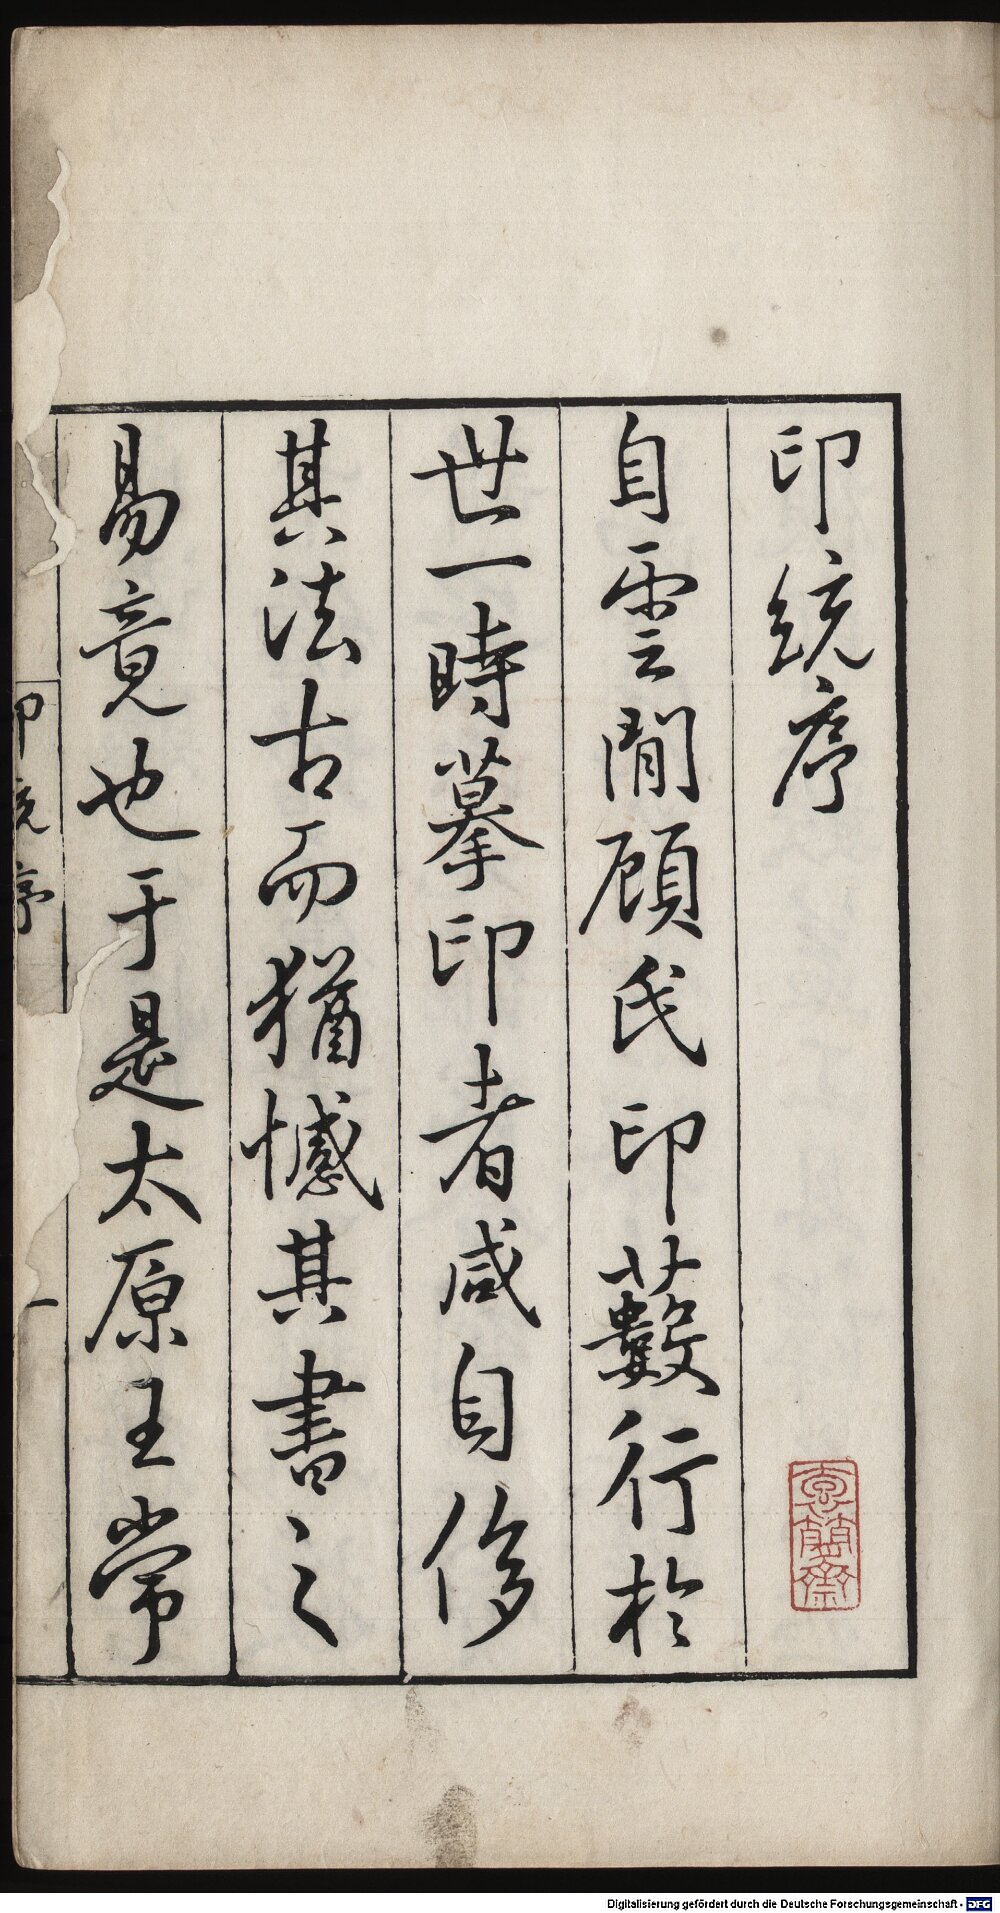 印統序
自雲間顧氏印藪行於
世一時摹印者咸自侈
其法古而猶憾其書之
易竟也于是太原王常
印統序
一
蘭齋
Digitalisierung gefördert durch die Deutsche Forschungsgemeinschaft - DFG